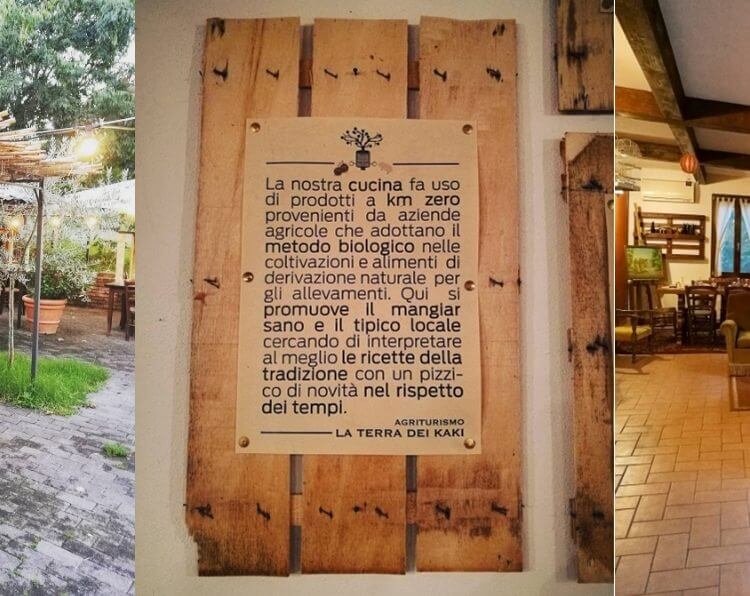 La nostra cucina fa uso
di prodotti a km zero
provenienti da aziende
agricole che adottano il
metodo biologico nelle
coltivazioni e alimenti di
derivazione naturale per
gli allevamenti. Qui si
promuove il mangiar
sano e il tipico locale
cercando di interpretare
al meglio le ricette della
tradizione con un pizzi-
co di novità nel rispetto
dei tempi.
AGRITURISMO
LA TERRA DEI KAKI